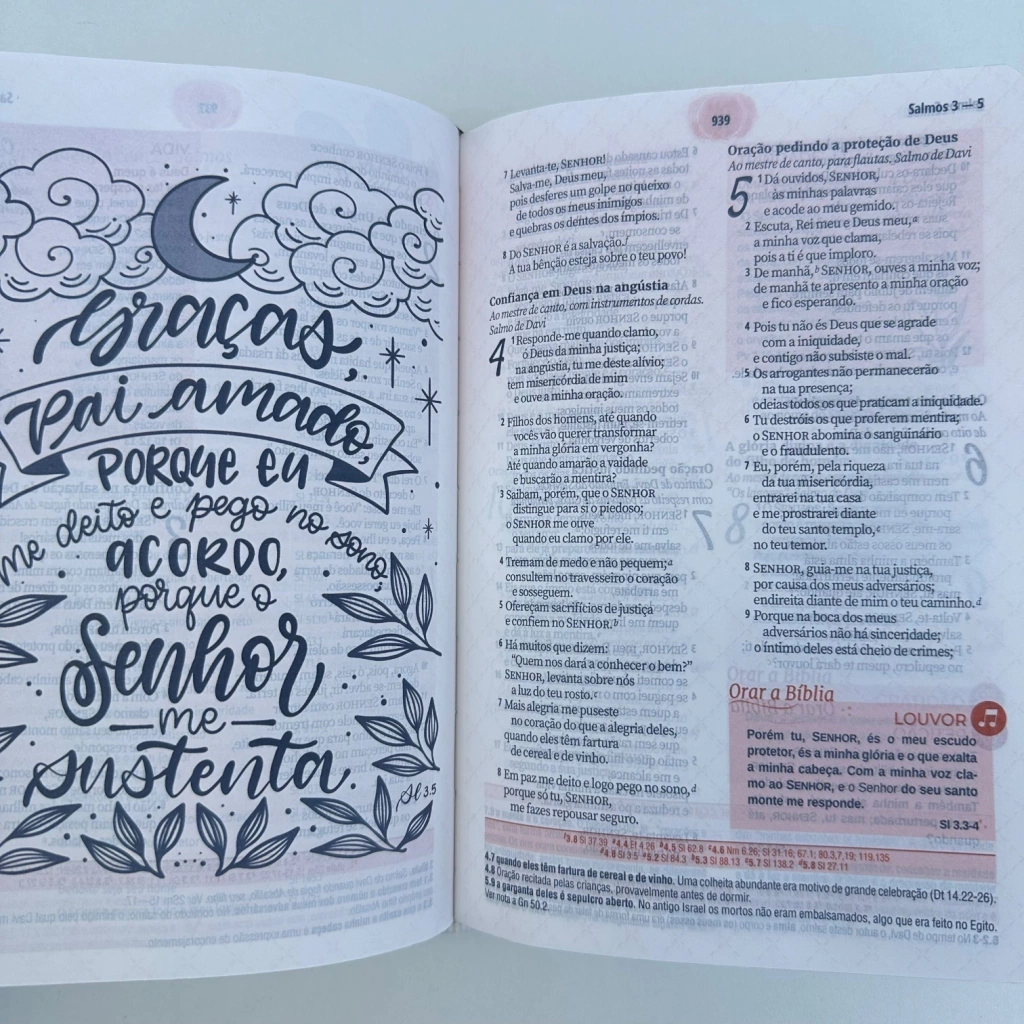 Graças,
Pai amado,
PORQUE EU
me deito e pego no sono;
ACORDO,
porque o
Senhor
me
sustenta.
Sl 3.5
939
Salmos 3 — 5
7 Levanta-te, SENHOR!
Salva-me, Deus meu,
pois desferes um golpe no queixo
de todos os meus inimigos
e quebras os dentes dos ímpios.
8 Do SENHOR é a salvação.f
A tua bênção esteja sobre o teu povo!
Confiança em Deus na angústia
Ao mestre de canto, com instrumentos de cordas.
Salmo de Davi
4 1 Responde-me quando clamo,
ó Deus da minha justiça;
na angústia, tu me deste alívio;
tem misericórdia de mim
e ouve a minha oração.
2 Filhos dos homens, até quando
vocês vão querer transformar
a minha glória em vergonha?
Até quando amarão a vaidade
e buscarão a mentira?
3 Saibam, porém, que o SENHOR
distingue para si o piedoso;
o SENHOR me ouve
quando eu clamo por ele.
4 Tremam de medo e não pequem;a
consultem no travesseiro o coração
e sosseguem.
5 Ofereçam sacrifícios de justiça
e confiem no SENHOR.b
6 Há muitos que dizem:
"Quem nos dará a conhecer o bem?"
SENHOR, levanta sobre nós
a luz do teu rosto.c
7 Mais alegria me puseste
no coração do que a alegria deles,
quando eles têm fartura
de cereal e de vinho.
8 Em paz me deito e logo pego no sono,d
porque só tu, SENHOR,
me fazes repousar seguro.
Oração pedindo a proteção de Deus
Ao mestre de canto, para flautas. Salmo de Davi
5 1 Dá ouvidos, SENHOR,
às minhas palavras
e acode ao meu gemido.
2 Escuta, Rei meu e Deus meu,a
a minha voz que clama,
pois a ti é que imploro.
3 De manhã,b SENHOR, ouves a minha voz;
de manhã te apresento a minha oração
e fico esperando.
4 Pois tu não és Deus que se agrade
com a iniquidade,
e contigo não subsiste o mal.
5 Os arrogantes não permanecerão
na tua presença;
odeias todos os que praticam a iniquidade.
6 Tu destróis os que proferem mentira;
o SENHOR abomina o sanguinário
e o fraudulento.
7 Eu, porém, pela riqueza
da tua misericórdia,
entrarei na tua casa
e me prostrarei diante
do teu santo templo,c
no teu temor.
8 SENHOR, guia-me na tua justiça,
por causa dos meus adversários;
endireita diante de mim o teu caminho.d
9 Porque na boca dos meus
adversários não há sinceridade;
o íntimo deles está cheio de crimes;
Orar a Bíblia
LOUVOR
Porém tu, SENHOR, és o meu escudo
protetor, és a minha glória e o que exalta
a minha cabeça. Com a minha voz cla-
mo ao SENHOR, e o Senhor do seu santo
monte me responde.
Sl 3.3-4
f3.8 Sl 37.39 a4.4 Ef 4.26 b4.5 Sl 62.8 c4.6 Nm 6.26; Sl 31.16; 67.1; 80.3,7,19; 119.135
d4.8 Sl 3.5 a5.2 Sl 84.3 b5.3 Sl 88.13 c5.7 Sl 138.2 d5.8 Sl 27.11
4.7 quando eles têm fartura de cereal e de vinho. Uma colheita abundante era motivo de grande celebração (Dt 14.22-26).
4.8 Oração recitada pelas crianças, provavelmente antes de dormir.
5.9 a garganta deles é sepulcro aberto. No antigo Israel os mortos não eram embalsamados, algo que era feito no Egito.
Ver nota a Gn 50.2.